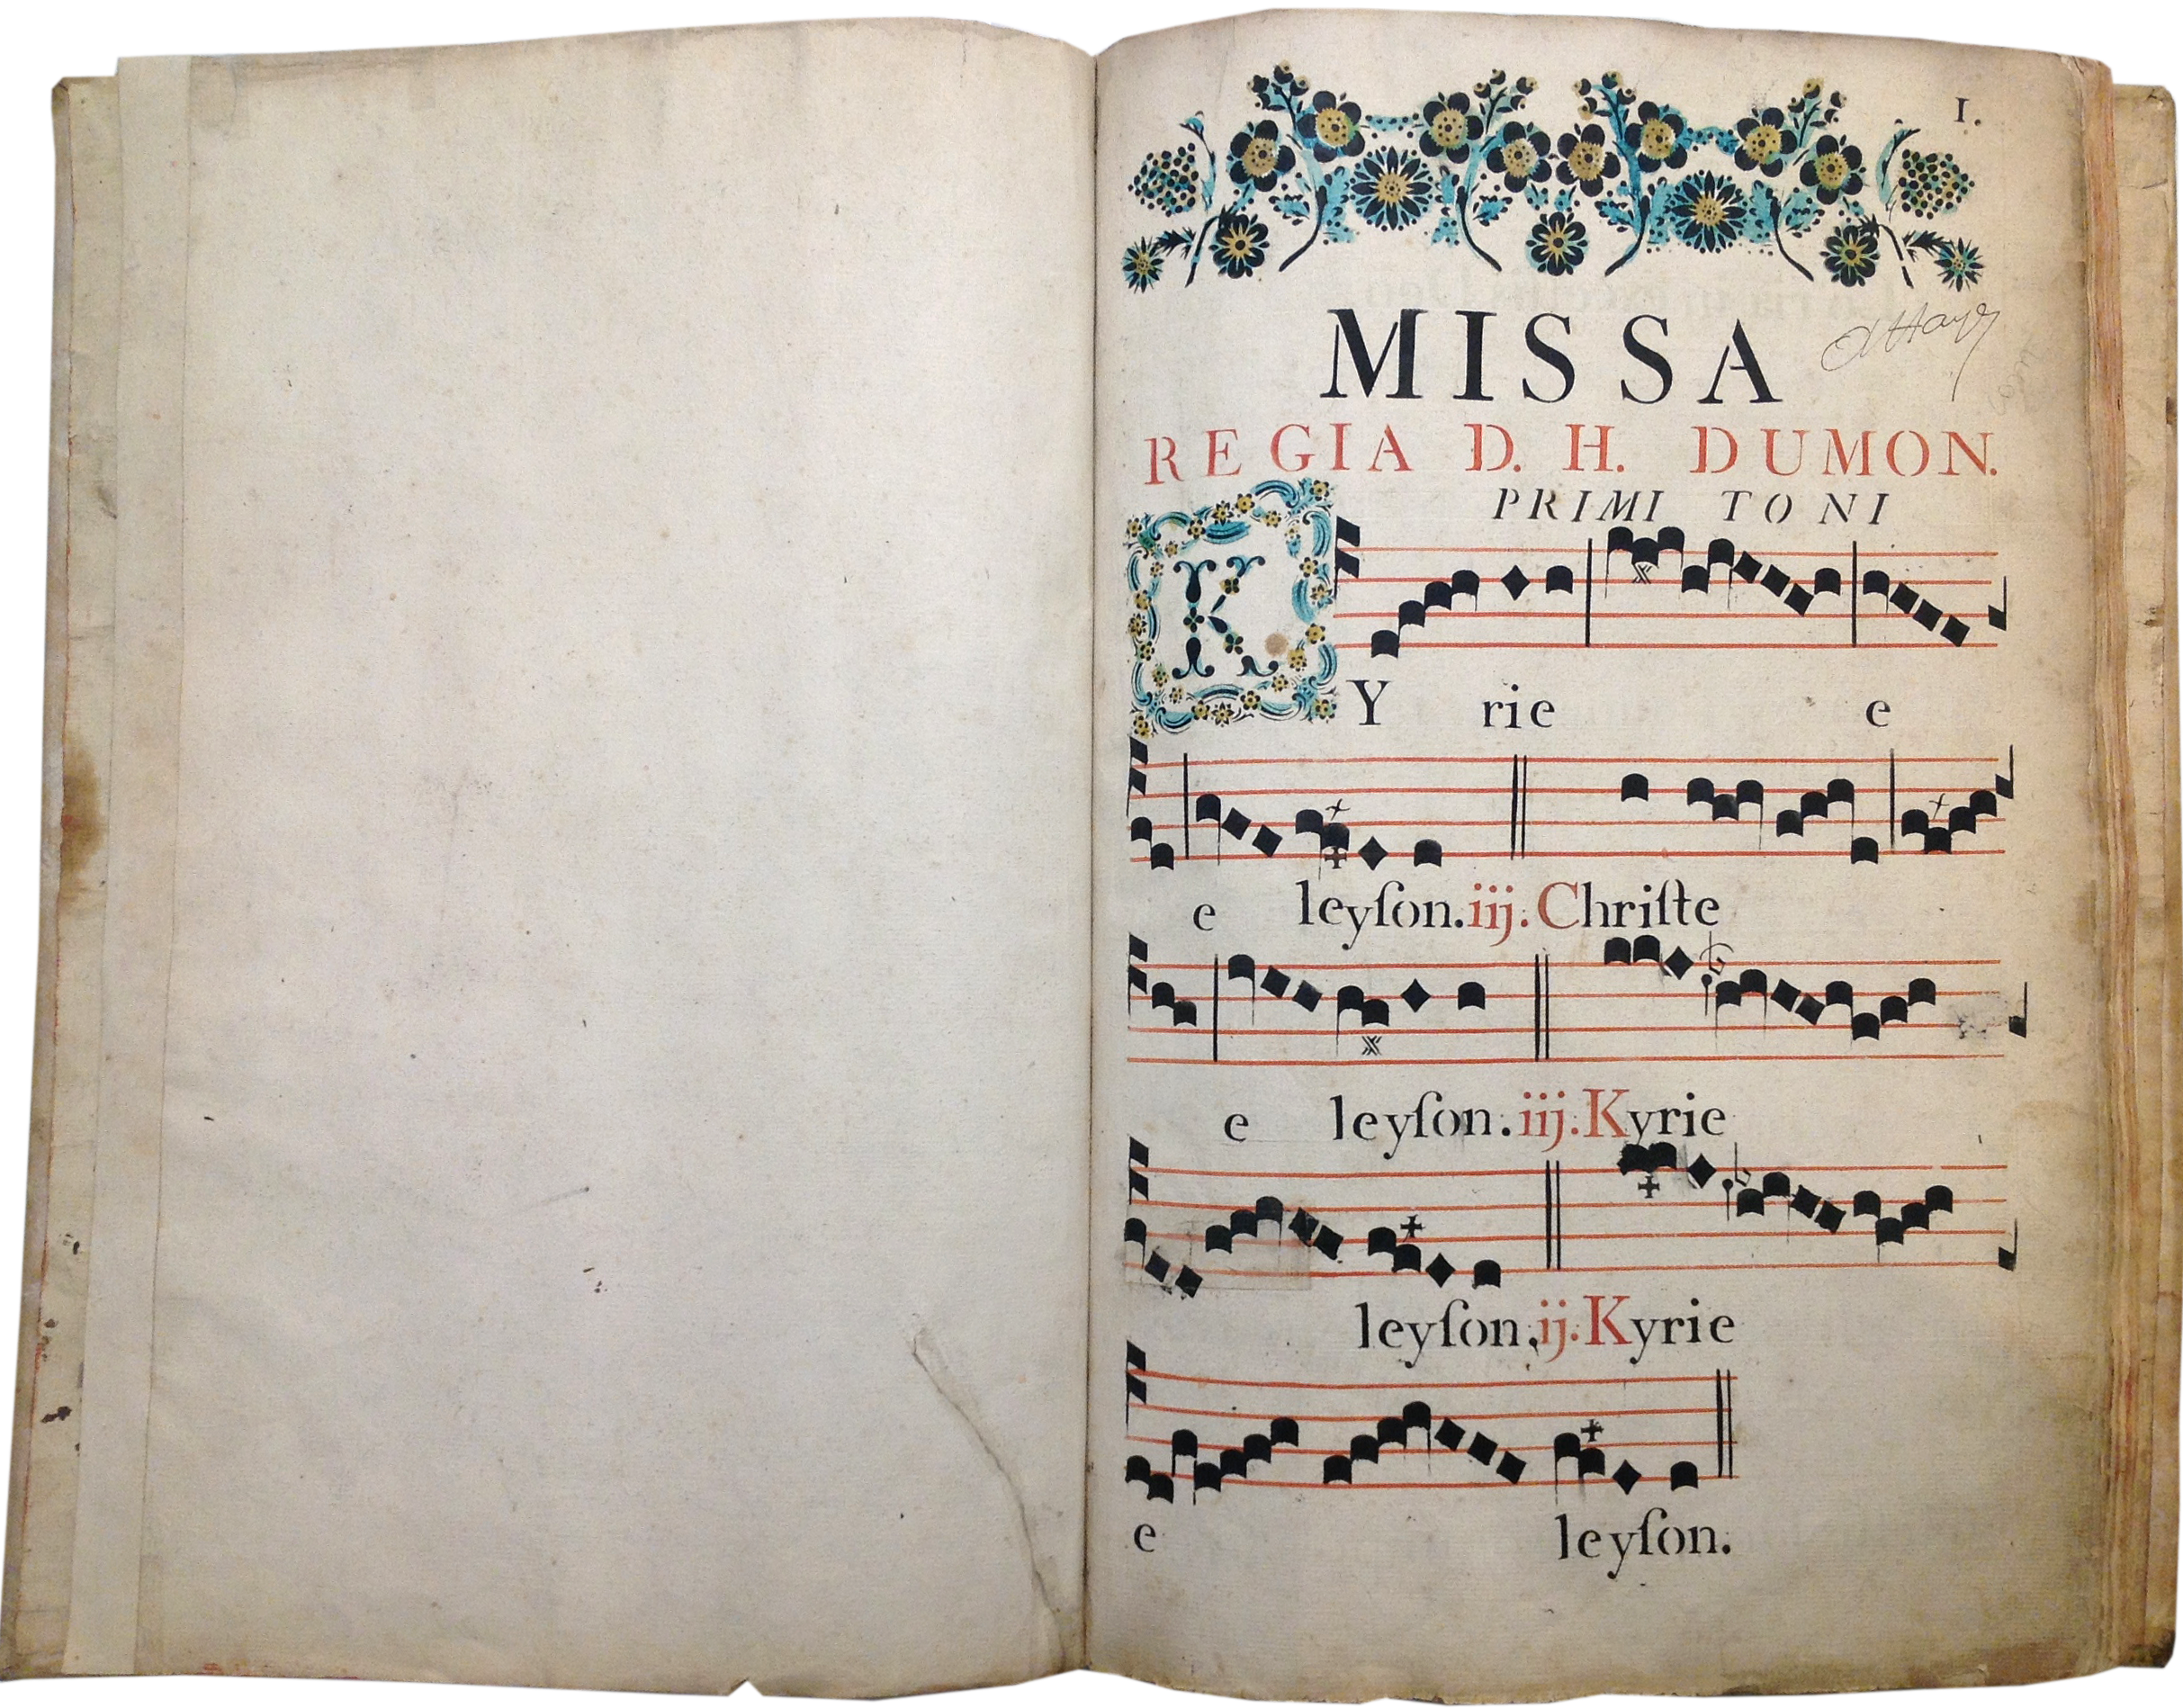 1.
MISSA
REGIA D. H. DUMON.
PRIMI TONI
KY rie e
e leyſon. iij. Chriſte
e leyſon. iij. Kyrie
leyſon. ij. Kyrie
e leyſon.